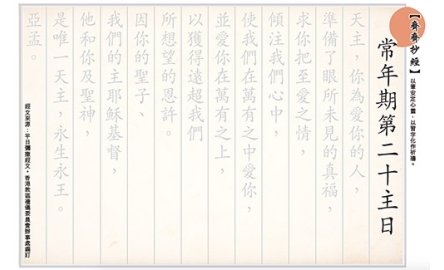 【齊齊抄經】
以筆安定心靈,以習字化作祈禱。
常年期第二十主日
天主,你為愛你的人,
準備了眼所未見的真福,
求你把至愛之情,
傾注我們心中,
使我們在萬有之中愛你,
並愛你在萬有之上,
以獲得遠超我們
所想望的恩許。
因你的聖子、
我們的主耶穌基督,
他和你及聖神,
是唯一天主,永生永王。
亞孟。
經文來源:平日彌撒經文。香港教區禮儀委員會辦事處編訂